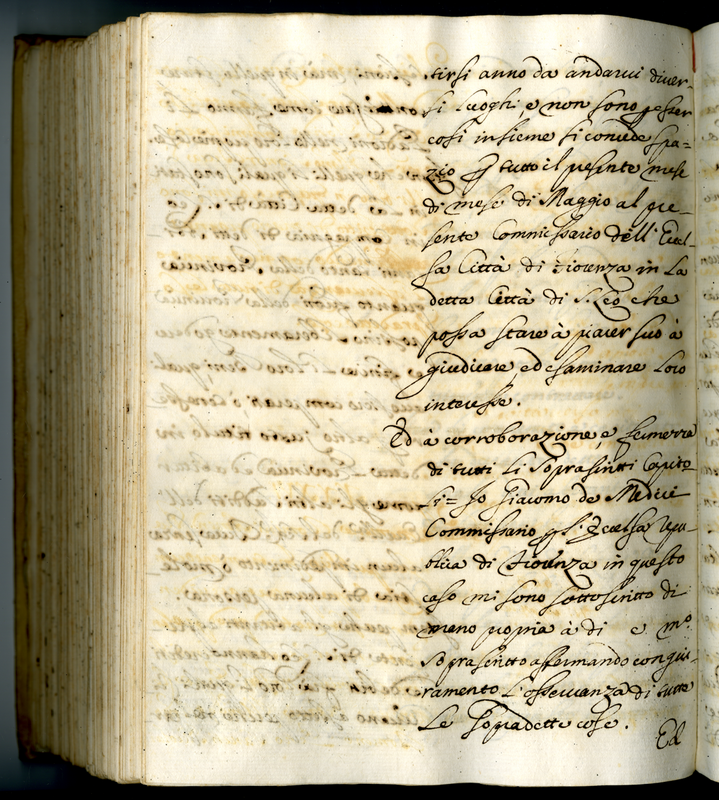 tirsi anno da andarvi diver-
si luoghi, e non sono p esser
cosi insieme si concede spa=
zio p tutto il presente mese
di mese di Maggio al pre-
sente Commissario dell' Eccel-
sa Città di Fiorenza in La
detta Città di S. Leo che
possa stare à piacer suo à
giudicare, ed esaminare Loro
interesse.
Ed à corroborazione, e fermezza
di tutti Li Soprascritti Capito-
li = Jo Giacomo de Medici
Commissario p l' Eccelsa Repu-
blica di Fiorenza in questo
caso mi sono sottoscritto di
mano propria à di e m.º
Soprascritto affermando con giu-
ramento L'osservanza di tutte
Le Sopradette cose.
Ed